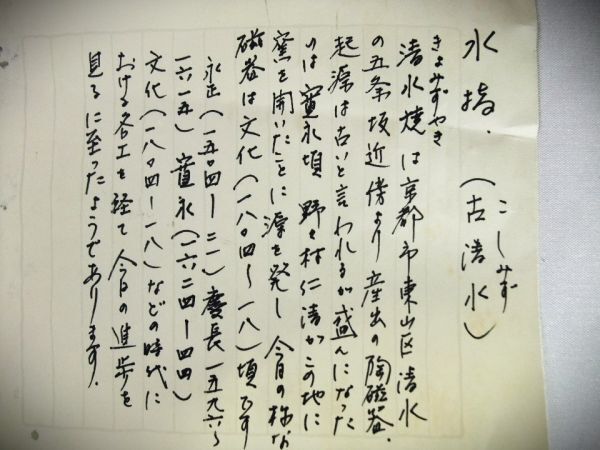 水指.
(古清水)
こしみず
きよみずやき
清水焼は京都市東山区清水
の五条坂近傍より産出の陶磁器.
起源は古いと言われるが盛んになった
のは寛永頃 野々村仁清がこの地に
窯を開いたことに源を発し 今日の様な
磁器は文化(一八〇四〜一八)頃です
永正(一五〇四ー二一)慶長一五九六〜
一六一五) 寛永(一六二四ー四四)
文化(一八〇四ー一八)などの時代に
おける名工を経て 今日の進歩を
見るに至ったようであります.